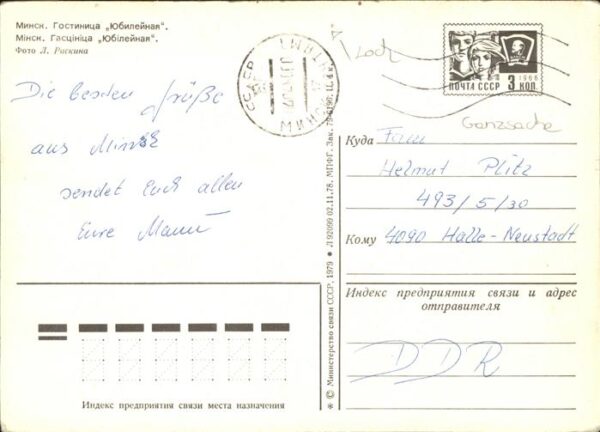 Минск. Гостиница „Юбилейная“.
Мінск. Гасцініца „Юбілейная“.
Фото Л. Раскина
Die besten Grüße
aus Minsk
sendet Euch allen
Eure
Loch
ПОЧТА СССР 3 КОП
1966
Ganzsache
МИНСК
Куда
Frau
Helmut Plitz
493/5/30
Кому 4090 Halle-Neustadt
Индекс предприятия связи и адрес
отправителя
DDR
* © Министерство связи СССР, 1979 ♦ Л 92099 02.11.78. МПФГ. Зак. 78-6190. Ц. 4 к.
Индекс предприятия связи места назначения